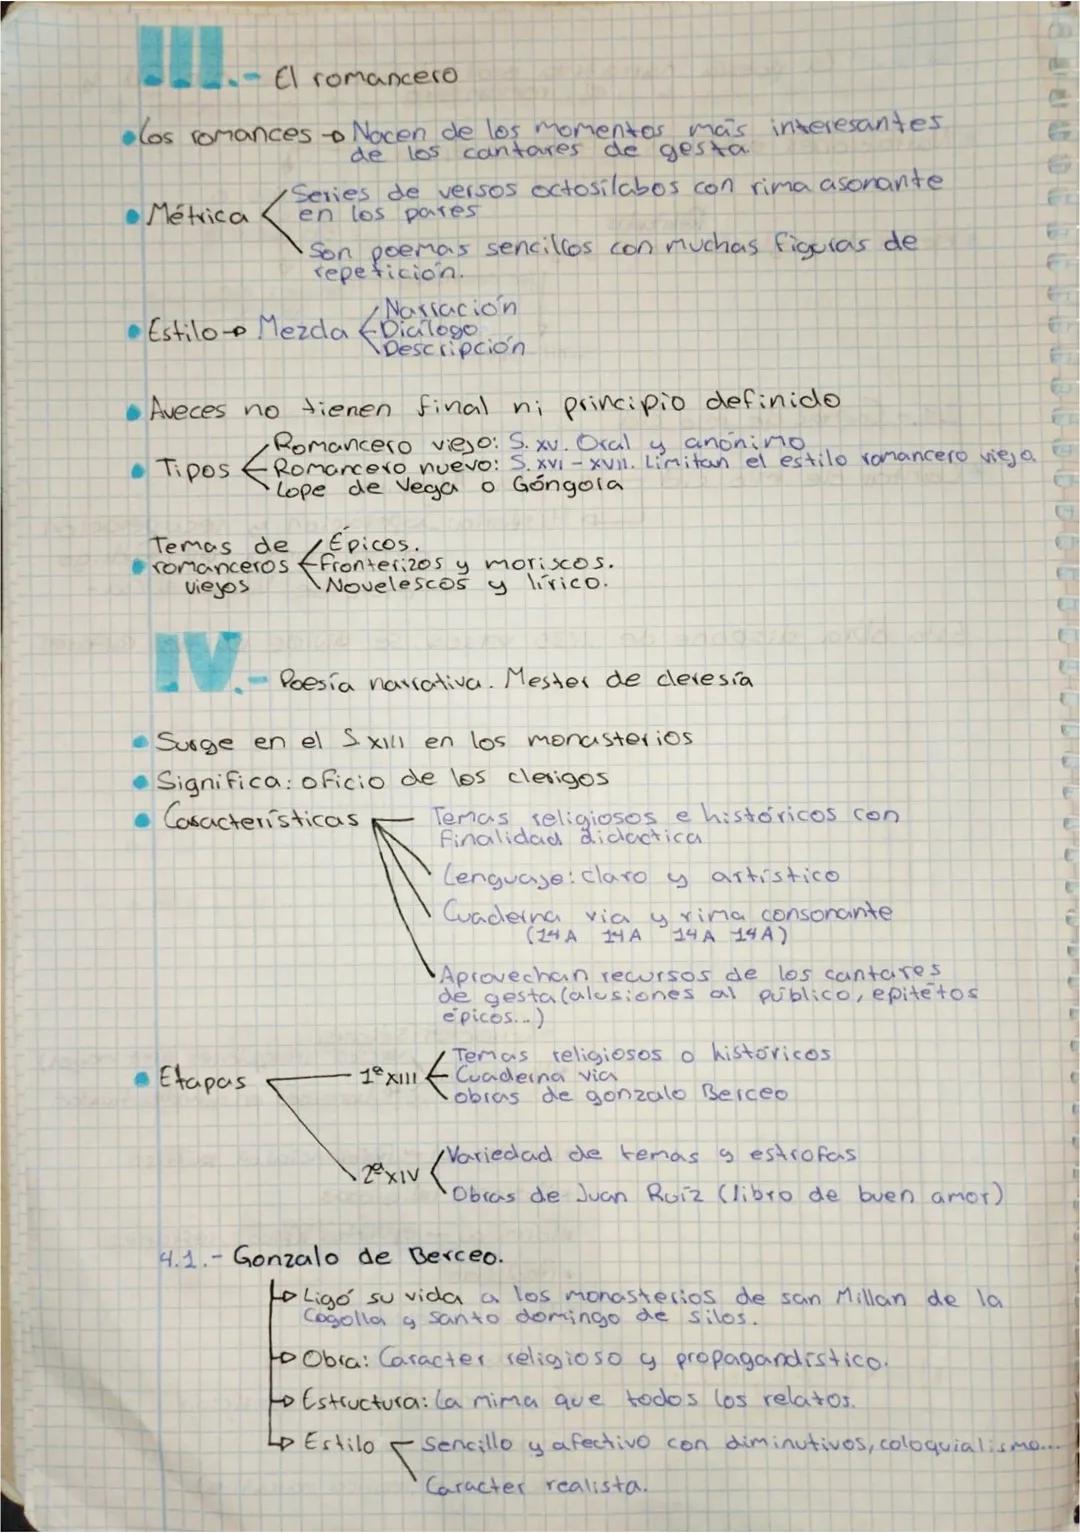 III.- El romancero
•Los romances → Nacen de los momentos más interesantes
de los cantares de gesta.
• Métrica
Series de versos octosílabos con rima asonante
en los pares
Son poemas sencillos con muchas figuras de
repetición.
• Estilo → Mezcla
Narración
Diálogo
Descripción
• Aveces no tienen final ni principio definido
• Tipos
Romancero viejo: S. XV. Oral y anónimo
Romancero nuevo: S. XVI - XVII. Limitan el estilo romancero viejo
Lope de Vega o Góngora
Temas de
• romanceros
viejos
Épicos.
Fronterizos y moriscos.
Novelescos y lírico.
IV.- Poesía narrativa. Mester de cleresía
• Surge en el S XIII en los monasterios
• Significa: oficio de los clerigos
• Casacterísticas
Temas religiosos e históricos con
finalidad didactica
Lenguaje: claro y artístico
Cuaderna via y rima consonante
(14A 14A 14A 14A)
Aprovechan recursos de los cantares
de gesta (alusiones al público, epitetos
épicos...)
• Etapas
1ª XIII
Temas religiosos o históricos
Cuaderna via
obras de gonzalo Berceo
2ª XIV
Variedad de temas y estrofas
Obras de Juan Ruíz (libro de buen amor)
4.1.- Gonzalo de Berceo.
→ Ligó su vida a los monasterios de san Millan de la
Cogolla y santo domingo de silos.
→ Obra: Caracter religioso y propagandístico.
→ Estructura: La mima que todos los relatos.
→ Estilo
Sencillo y afectivo con diminutivos, coloquialismo...
Caracter realista.